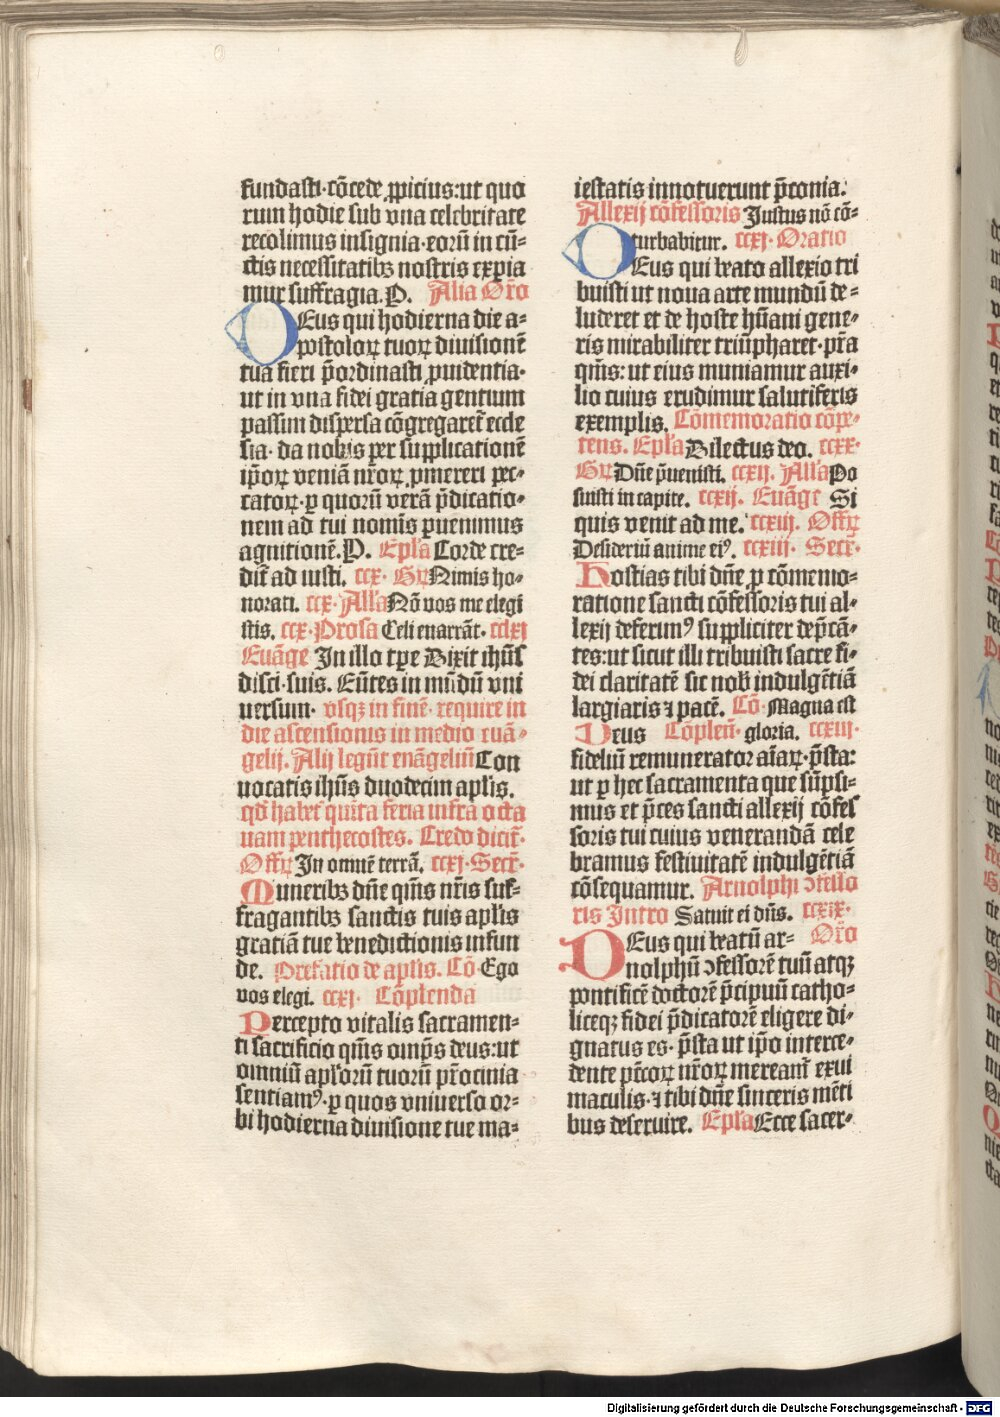 fundasti·cōcede ꝓpicius:ut quo
rum hodie sub vna celebritate
recolimus insignia·eorū in cū-
ctis necessitatibꝫ nostris expia
mur suffragia.P. Alia Or̄o
DEus qui hodierna die a-
postoloꝝ tuoꝝ diuisionē
tua fieri p̄ordinasti ꝓuidentia·
ut in vna fidei gratia gentium
passim dispersa cōgregaret᷑ eccle
sia·da nobis per supplicationē
ip̄oꝝ veniā nr̄oꝝ ꝓmereri pec-
catoꝝ·ꝑ quorū verā p̄dicatio-
nem ad tui nomīs ꝑuenimus
agnitionē.P. Ep̄la Corde cre-
dit᷑ ad iusti. ccx· Gꝝ Nimis ho-
norati. ccx·All'a Nō vos me elegi
stis. ccx·Prosa Celi enarrāt·cclxj
Euāge In illo tꝑe Dixit ih̄us
disci·suis. Eūtes in mūdū vni
uersum· vsqꝫ in finē· require in
die ascensionis in medio euā-
gelij. Alij legūt euāgeliū Con
uocatis ih̄us duodecim apl̄is.
qd̄ habet᷑ quīta feria infra octa
uam penthecostes. Credo dicit᷑·
Offꝝ In omnē terrā. ccxj·Secr̄·
Muneribꝫ dn̄e qm̄s nr̄is suf-
fragantibꝫ sanctis tuis apl̄is
gratiā tue benedictionis infun
de. Prefatio de apl̄is. Cō·Ego
vos elegi. ccxj· Cōplenda
Percepto vitalis sacramen-
ti sacrificio qm̄s omp̄s deus:ut
omniū apl̄orū tuorū pr̄ocinia
sentiamꝰ·ꝑ quos vniuerso or-
bi hodierna diuisione tue ma-
iestatis innotuerunt p̄conia.
Allexij cōfessoris Justus nō cō-
turbabitur. ccxj·Oratio
DEus qui beato allexio tri
buisti ut noua arte mundū de-
luderet et de hoste hūani gene-
ris mirabiliter triūpharet·pr̄a
qm̄s:ut eius muniamur auxi-
lio cuius erudimur salutiferis
exemplis. Cōmemoratio cōpe-
tens. Ep̄la Dilectus deo. ccxx·
Gꝝ Dn̄e p̄uenisti. ccxij. All'a Po
suisti in capite. ccxij. Euāge Si
quis venit ad me. ccxiij. Offꝝ
Desideriū anime eiꝰ. ccxiij· Secr̄·
Hostias tibi dn̄e ꝓ cōmemo-
ratione sancti cōfessoris tui al-
lexij deferimꝰ suppliciter dep̄cā-
tes:ut sicut illi tribuisti sacre fi-
dei claritatē sic nob̄ indulgētiā
largiaris ⁊ pacē. Cō· Magna est
Deus Cōplen̄· gloria. ccxiij·
fideliū remunerator aīaꝝ·p̄sta:
ut ꝑ hec sacramenta que sūpsi-
mus et p̄ces sancti allexij cōfes
soris tui cuius venerandā cele
bramus festiuitatē indulgētiā
cōsequamur. Arnolphi ↄfesso
ris Intro Satuit ei dn̄s. ccxix·
DEus qui beatū ar- Or̄o
nolphū ↄfessorē tuū atqꝫ
pontificē doctorē p̄cipuū catho-
liceqꝫ fidei p̄dicatorē eligere di-
gnatus es·p̄sta ut ip̄o interce-
dente pc̄coꝝ nr̄oꝝ mereant᷑ exui
maculis·⁊ tibi dn̄e sinceris mēti
bus deseruire. Ep̄la Ecce sacer-
Digitalisierung gefördert durch die Deutsche Forschungsgemeinschaft - DFG